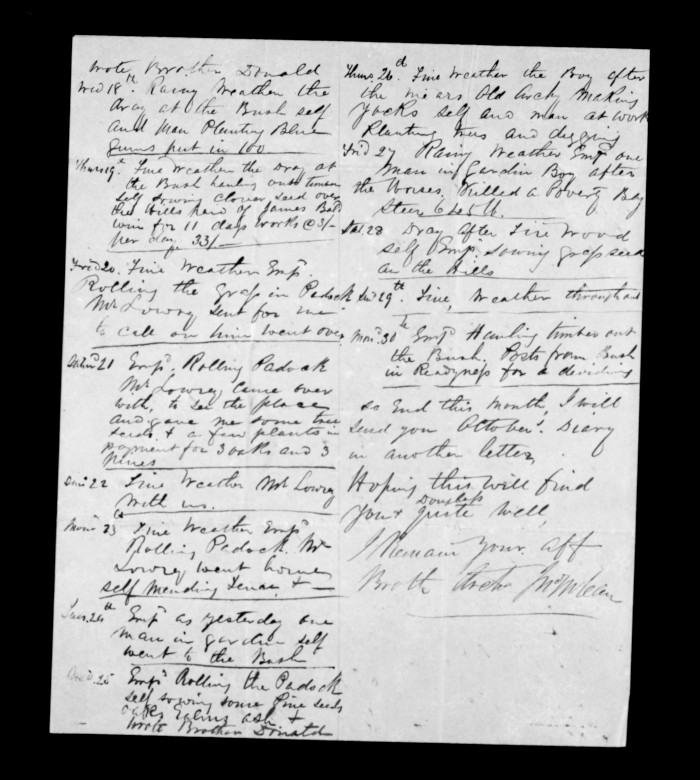 wrote Brother Donald
Wed 18th Rainy Weather the
dray at the Bush self
and Man Planting Blue
Gums put in 100
Thurs 19th Fine Weather the Dray at
the Bush hauling out timber
self sowing clover seed over
the Hills paid of James Bald
win for 11 days works @ 3/-
per day 33/-
Frid 20. Fine Weather Empd
Rolling the Grass in Padock
Mr Lowry sent for me
to call on him went over
21 Empd, Rolling Padock
Mr Lowry Came over
with, to see the place
and gave me some tree
seeds & a few plants in
payment for 3 oaks and 3
Pines
22 Fine Weather Mr Lowry
with us.
Mon 23d Fine Weather Empd
Rolling Padock. Mr
Lowry went home
self Mending Fence &
Tues. 24th Empd as yesterday one
man in garden self
went to the Bush
25 Empd Rolling the Padock
self sowing some Pine seeds
oaks ash &
wrote Brother Donald
Thurs. 26d Fine Weather the Boy after
the Mears Old Archy Making
Yocks self and man at work
Planting trees and digging
Frid 27 Rainy Weather Empd one
Man in Gardin Boy after
the Horses. Killed a Poverty Bay
Steer 645 lb.
Sat. 28 Dray after Fire Wood
self Empd Sowing grass seed
on the Hills
29th. Fine, Weather throughout
Mon. 30th Empd Hauling timber out
the Bush. Posts from Bush
in Readyness for a deviding
so End this month, I will
send you October. Diary
in another letter.
Hoping this will find
You & Douglass quite well,
I Remain Your. aff
Broth Archd McLean